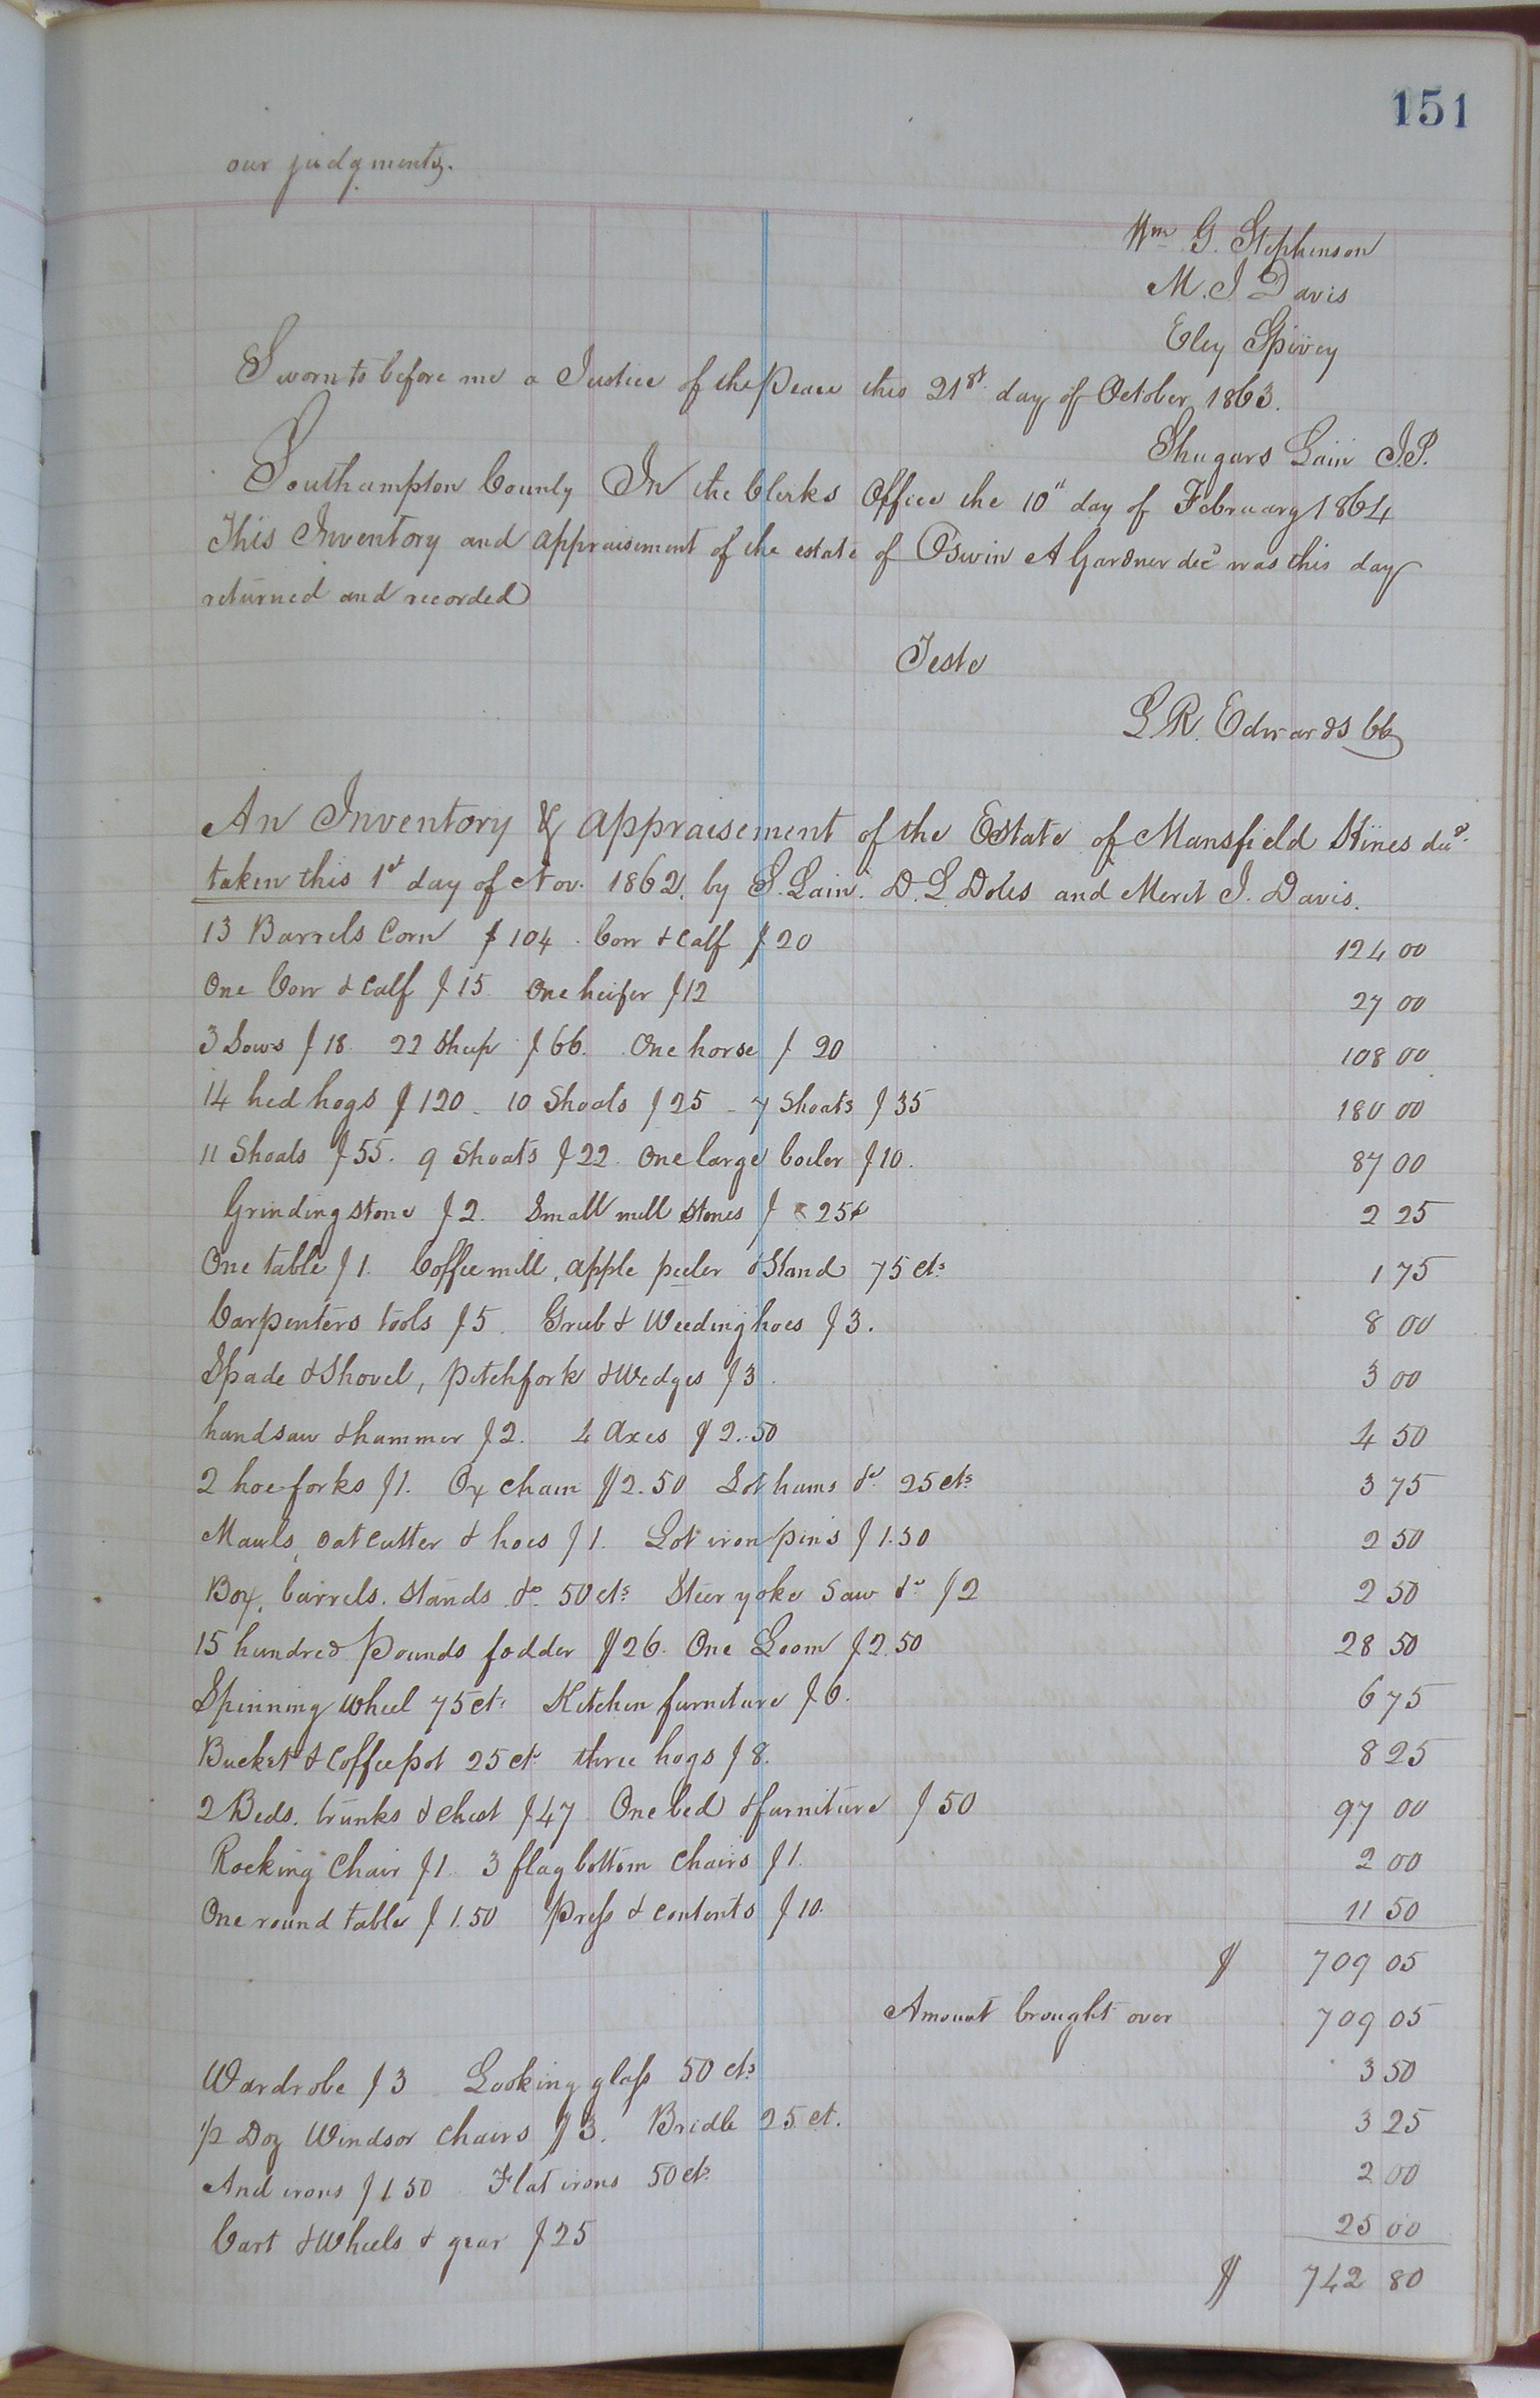 151
our judgments.
Wm G. Stephenson
M. J Davis
Eley Spivey
Sworn to before me a Justice of the Peace this 21st day of October 1863.
Shugars Lain J.P.
Southampton County In the Clerks Office the 10th day of February 1864
This Inventory and appraisement of the estate of Oswin A Gardner decd was this day
returned and recorded
Teste
L. R. Edwards Ck
An Inventory & appraisement of the Estate of Mansfield Hines decd.
taken this 1st day of Nov. 1862, by S. Lain. D. L Doles and Merit J. Davis.
13 Barrels Corn $104. Cow & Calf $20 124 00
One Cow & Calf $15 One heifer $12 27 00
3 Sows $18. 22 Sheep $66. One horse $20 108 00
14 hed hogs $120. 10 Shoats $25 - 7 Shoats $35 180 00
11 Shoats $55. 9 Shoats $22. One large boiler $10. 87 00
Grinding stone $2. Small mill stones $ 25¢ 2 25
One table $1. Coffee mill, apple peeler & Stand 75 cts 1 75
Carpenters tools $5. Grub & Weeding hoes $3. 8 00
Spade & Shovel, pitchfork & Wedges $3. 3 00
handsaw & hammer $2. 4 Axes $2.50 4 50
2 hoe forks $1. Ox chain $2.50 Lot hams &c 25 cts 3 75
Mauls, oat cutter & hoes $1. Lot iron pins $1.50 2 50
Box, barrels. Stands &c 50 cts Steer yoke Saw &c $2 2 50
15 hundred pounds fodder $26. One Loom $2.50 28 50
Spinning wheel 75 cts Kitchen furniture $6. 6 75
Bucket & Coffeepot 25 ct three hogs $8. 8 25
2 Beds. trunks & chest $47 One bed & furniture $50 97 00
Rocking Chair $1. 3 flag bottom chairs $1. 2 00
One round table $1.50 Press & contents $10. 11 50
$ 709 05
Amount brought over 709 05
Wardrobe $3 Looking glass 50 cts 3 50
1/2 Doz Windsor chairs $3. Bridle 25 ct. 3 25
And irons $1 50 Flat irons 50 cts 2 00
Cart & Wheels & gear $25 25 00
$ 742 80